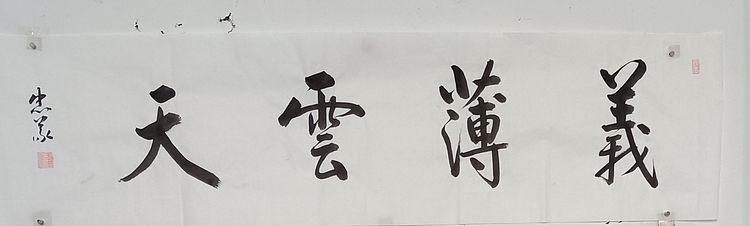 義薄雲天
忠義